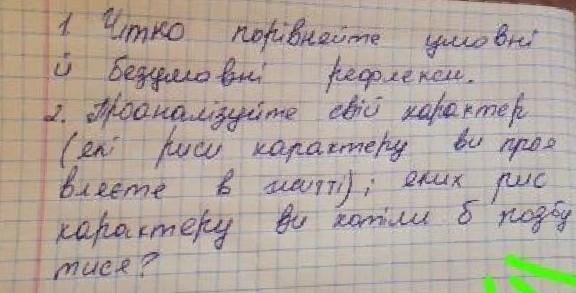 1. Чітко порівняйте умовні
й безумовні рефлекси.
2. Проаналізуйте свій характер
(які риси характеру ви проя
вляєте в житті); яких рис
характеру ви хотіли б позбу
тися?